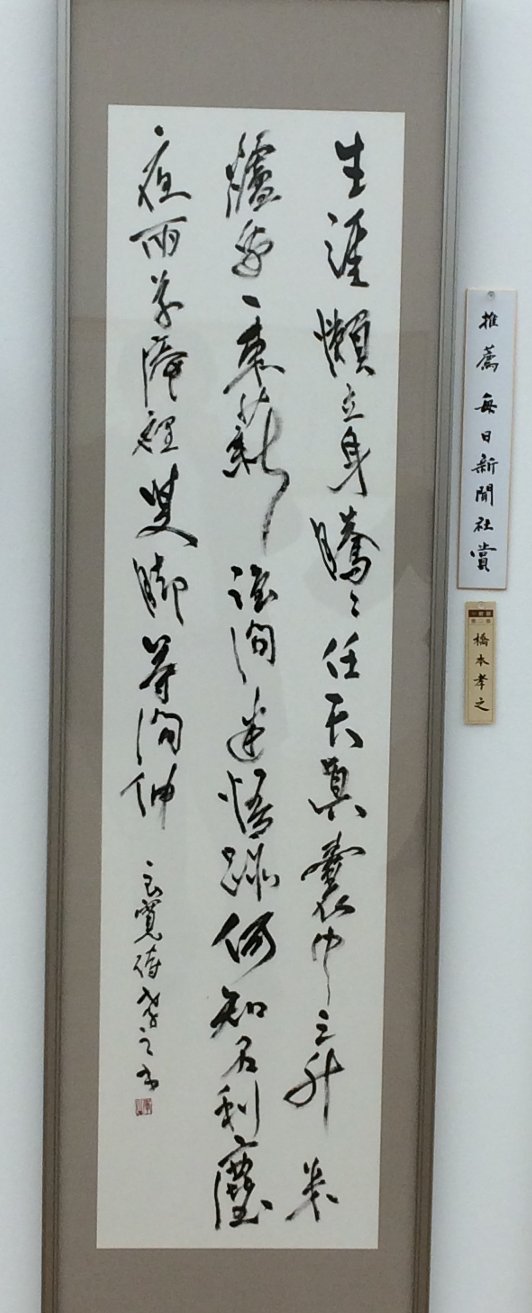 生涯懶立身騰々任天真嚢中三升米
爐邊一束薪誰問迷悟跡何知名利塵
夜雨草庵裡雙脚等間伸
良寛詩 孝之書
推薦 毎日新聞社賞
橋本孝之